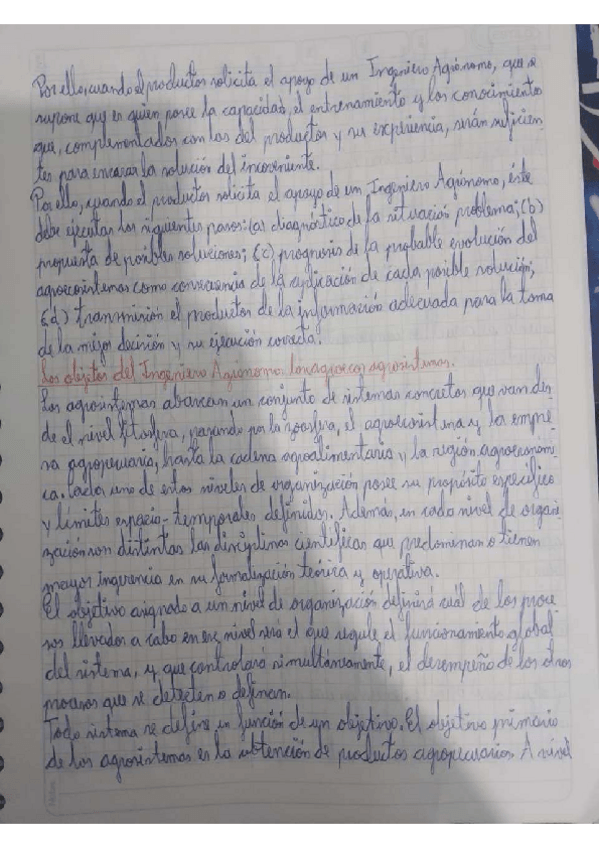 Por ello, cuando el productor solicita el apoyo de un Ingeniero Agrónomo, que se
supone que es quien posee la capacidad, el entrenamiento y los conocimientos
que, complementados con los del productor y su experiencia, serán suficien
tes para encarar la solución del inconveniente.
Por ello, cuando el productor solicita el apoyo de un Ingeniero Agrónomo, éste
debe ejecutar los siguientes pasos: (a) diagnóstico de la situación problema; (b)
propuesta de posibles soluciones; (c) prognosis de la probable evolución del
agroecosistemas como consecuencia de la aplicación de cada posible solución;
(d) transmisión el productor de la información adecuada para la toma
de la mejor decisión y su ejecución correcta.
Los objetos del Ingeniero Agrónomo: los agrosistemas.
Los agrosistemas abarcan un conjunto de sistemas concretos que van des
de el nivel fitosfera, pasando por la zoosfera, el agroecosistema y la empre
sa agropecuaria, hasta la cadena agroalimentaria y la región agroeconómi
ca. Cada uno de estos niveles de organización posee su propósito específico
y límites espacio-temporales definidos. Además, en cada nivel de organi
zación son distintas las disciplinas científicas que predominan o tienen
mayor ingerencia en su formalización teórica y operativa.
El objetivo asignado a un nivel de organización definirá cuál de los proce
sos llevados a cabo en ese nivel será el que regule el funcionamiento global
del sistema, y que controlará simultáneamente, el desempeño de los otros
procesos que se detecten o definan.
Todo sistema se define en función de un objetivo. El objetivo primario
de los agrosistemas es la obtención de productos agropecuarios. A nivel